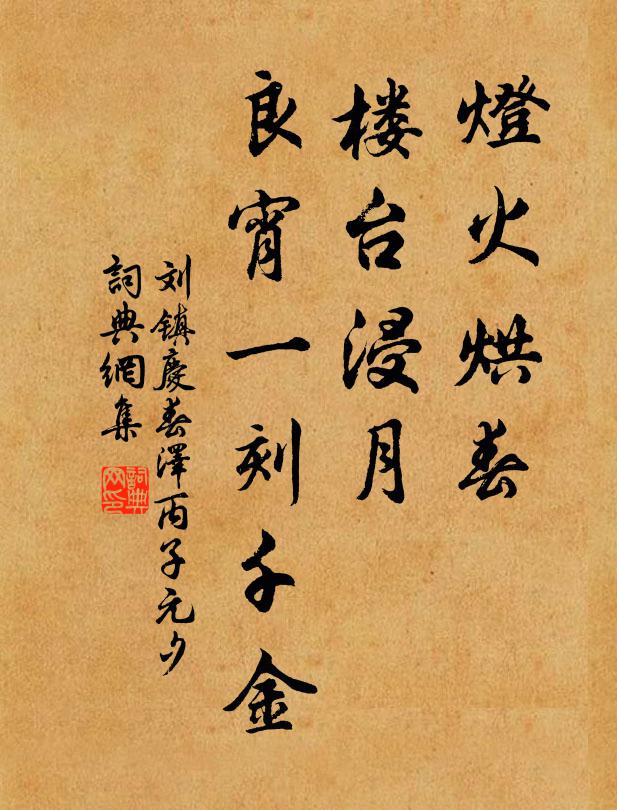 燈火烘春
楼台浸月
良宵一刻千金
刘镇慶春澤丙子元夕
詞典網集
詞典网印